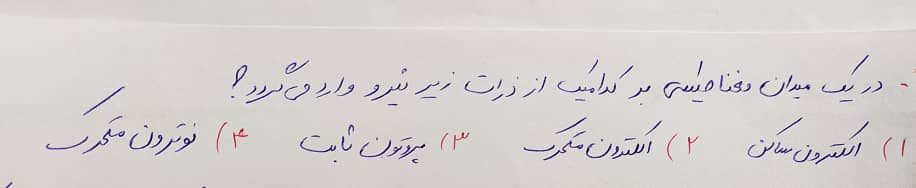 در یک میدان مغناطیسی بر کدامیک از ذرات زیر نیرو وارد می‌گردد؟
۱) الکترون ساکن ۲) الکترون متحرک ۳) پروتون ثابت ۴) نوترون متحرک